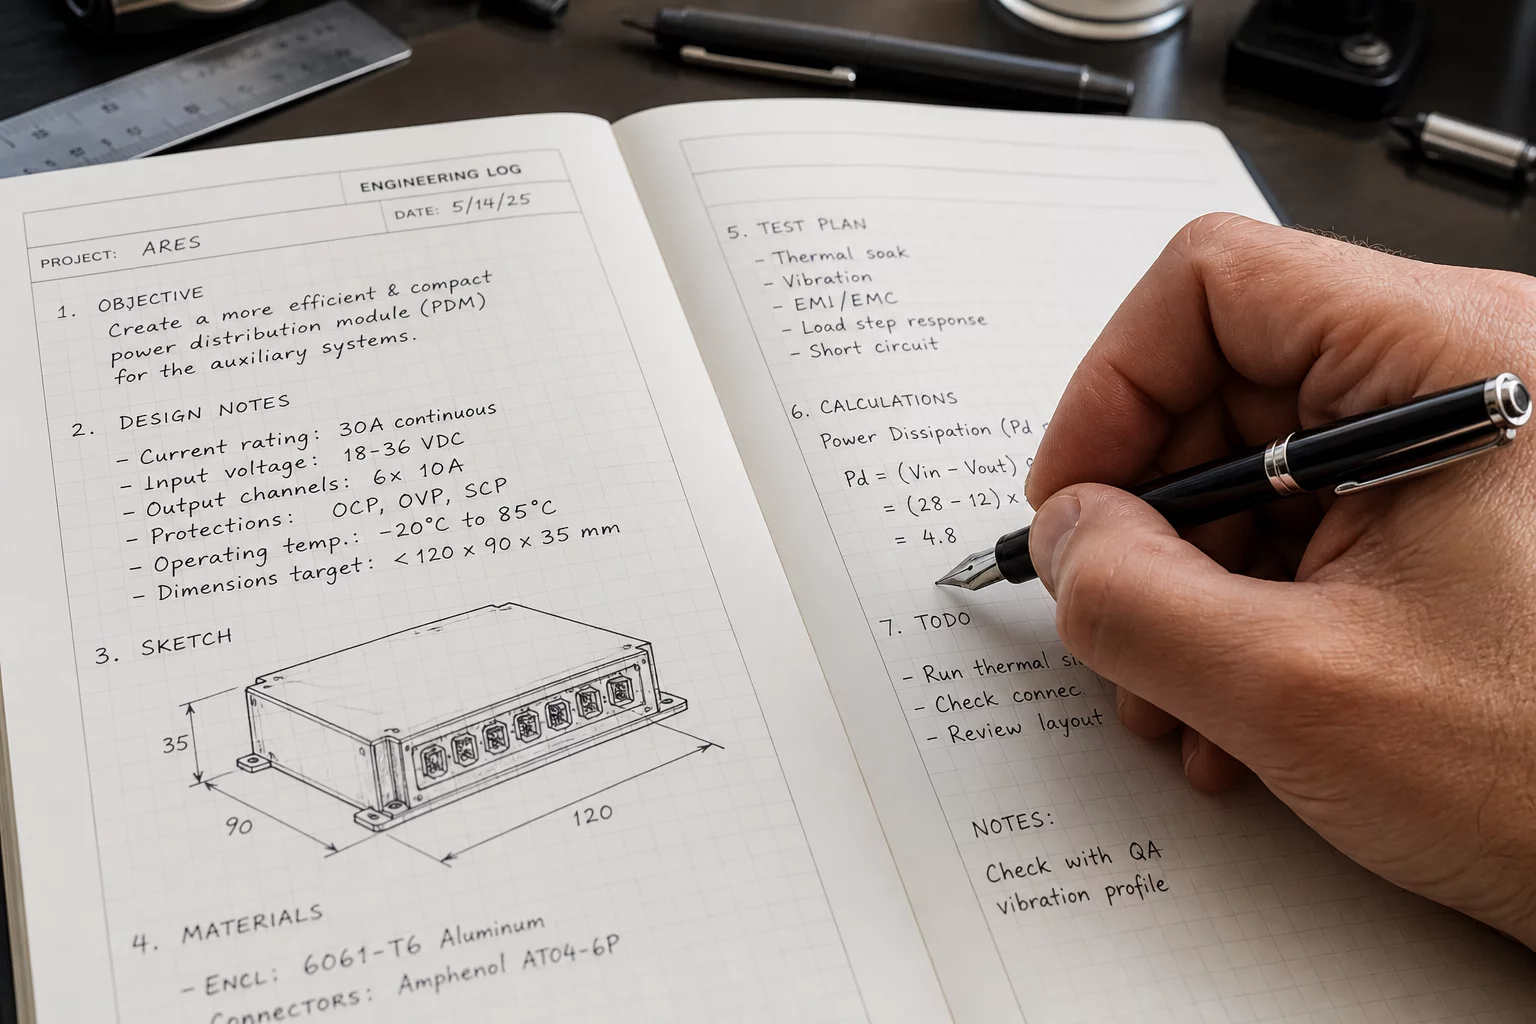 ENGINEERING LOG
DATE: 5/14/25
PROJECT: ARES
1. OBJECTIVE
Create a more efficient & compact
power distribution module (PDM)
for the auxiliary systems.
2. DESIGN NOTES
– Current rating: 30A continuous
– Input voltage: 18-36 VDC
– Output channels: 6x 10A
– Protections: OCP, OVP, SCP
– Operating temp.: -20°C to 85°C
– Dimensions target: < 120 x 90 x 35 mm
3. SKETCH
35
90
120
4. MATERIALS
– ENCL: 6061-T6 Aluminum
Connectors: Amphenol AT04-6P
5. TEST PLAN
– Thermal soak
– Vibration
– EMI/EMC
– Load step response
– Short circuit
6. CALCULATIONS
Power Dissipation (Pd
Pd = (Vin – Vout)
= (28 – 12) x
= 4.8
7. TODO
– Run thermal
– Check
– Review layout
NOTES:
Check with QA
vibration profile